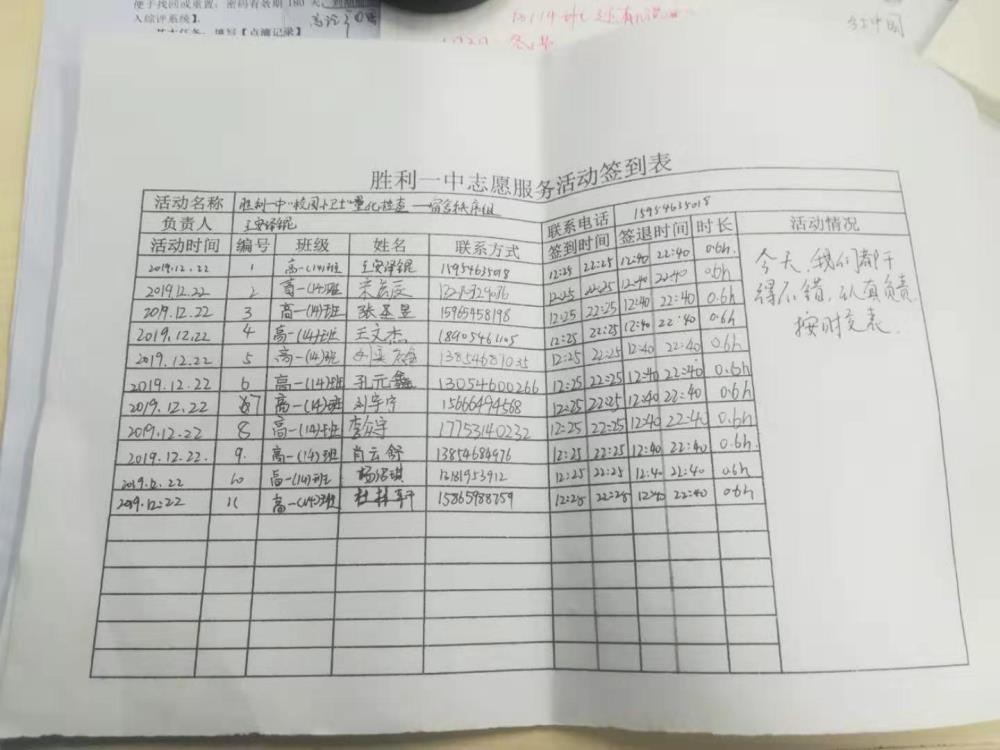 便于找回或重置；密码有效期 180 天
入综评系统】
胜利一中志愿服务活动签到表
活动名称 胜利一中"校园小卫士"量化检查—宿舍秩序组 联系电话 15954635018
负责人 王安泽锟 签到时间 签退时间 时长 活动情况
活动时间 编号 班级 姓名 联系方式
2019.12.22 1 高一(14)班 王安泽锟 15954635018 12:25 22:25 12:40 22:40 0.6h.
2019.12.22 2 高一(14)班 12:25 22:25 12:40 22:40 0.6h
2019.12.22 3 高一(14)班 张圣昱 15965458198 12:25 22:25 12:40 22:40 0.6h
2019.12.22 4 高一(14)班 王文杰 18905461105 12:25 22:25 12:40 22:40 0.6h
2019.12.22 5 高一(14)班 13854687035 12:25 22:25 12:40 22:40 0.6h
2019.12.22 6 高一(14)班 孔元鑫 13054600266 12:25 22:25 12:40 22:40 0.6h
2019.12.22 7 高一(14)班 刘宇宁 15666494568 12:25 22:25 12:40 22:40 0.6h
2019.12.22 8 高一(14)班 17753140232 12:25 22:25 12:40 22:40 0.6h
2019.12.22. 9. 高一(14)班 肖云舒 13854684976 12:25 22:25 12:40 22:40 0.6h.
2019.12.22 10 高一(14)班 13181953912 12:25 22:25 12:40 22:40 0.6h
2019.12.22 11 高一(14)班 15865988759 12:25 22:25 12:40 22:40 0.6h
今天,我们都干
得不错,认真负责,
按时交表.